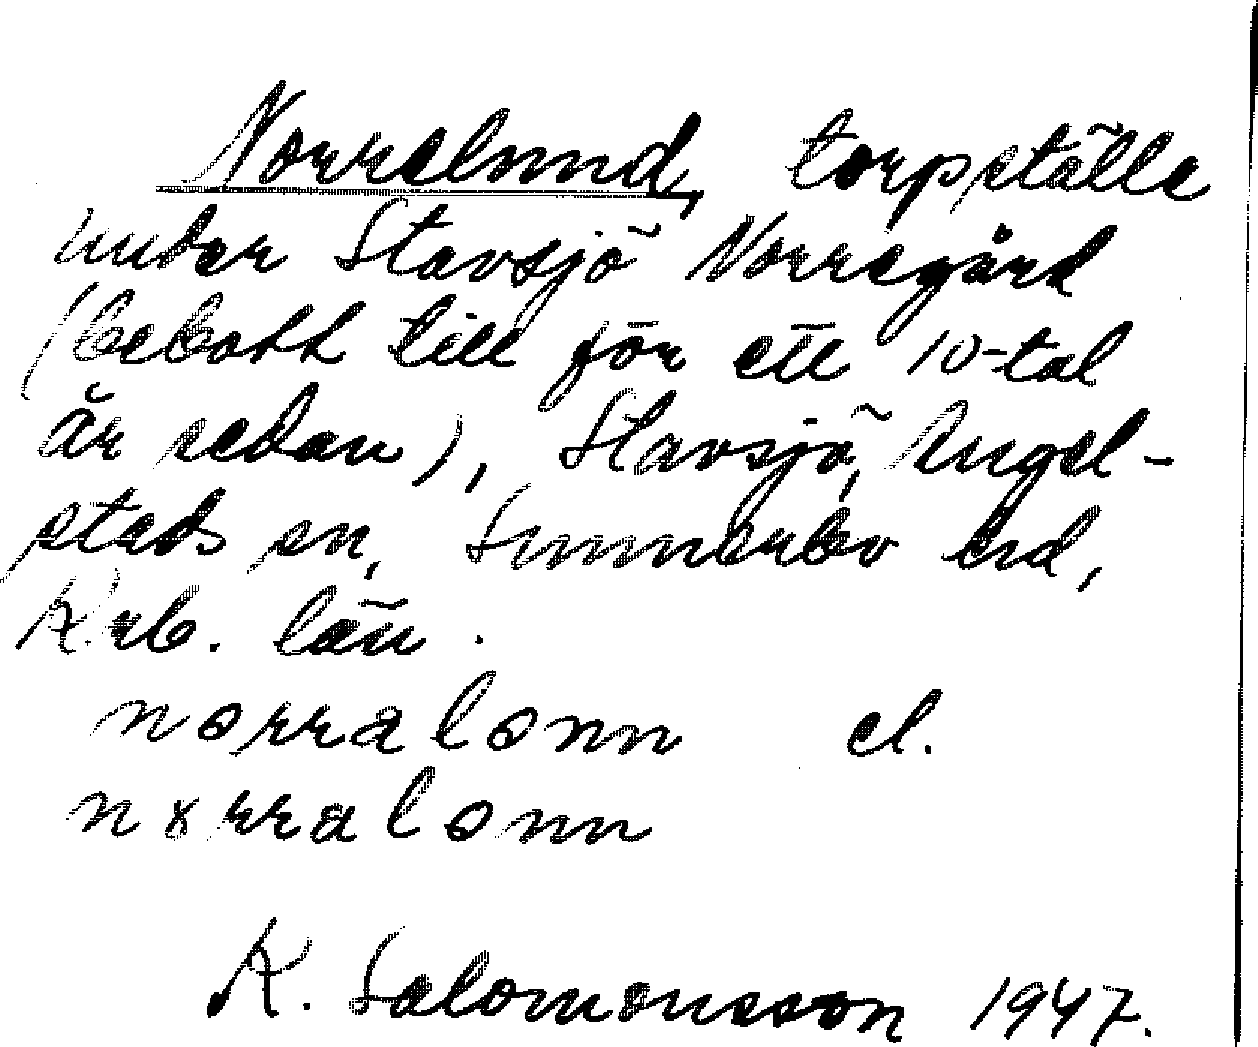 Norrelund, torpställe
under Stavsjö Norregård
(bebott till för ett 10-tal
år sedan), Stavsjö, Ängel-
stads sn, Sunnerbo hd,
Krb. län.
norralonn el.
nxrralonn
K. Salomonsson 1947.